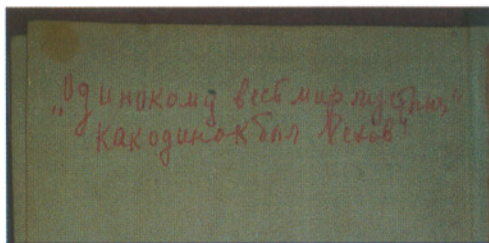 „Одинокому весь мир пустыня"
Как одинок был Чехов"